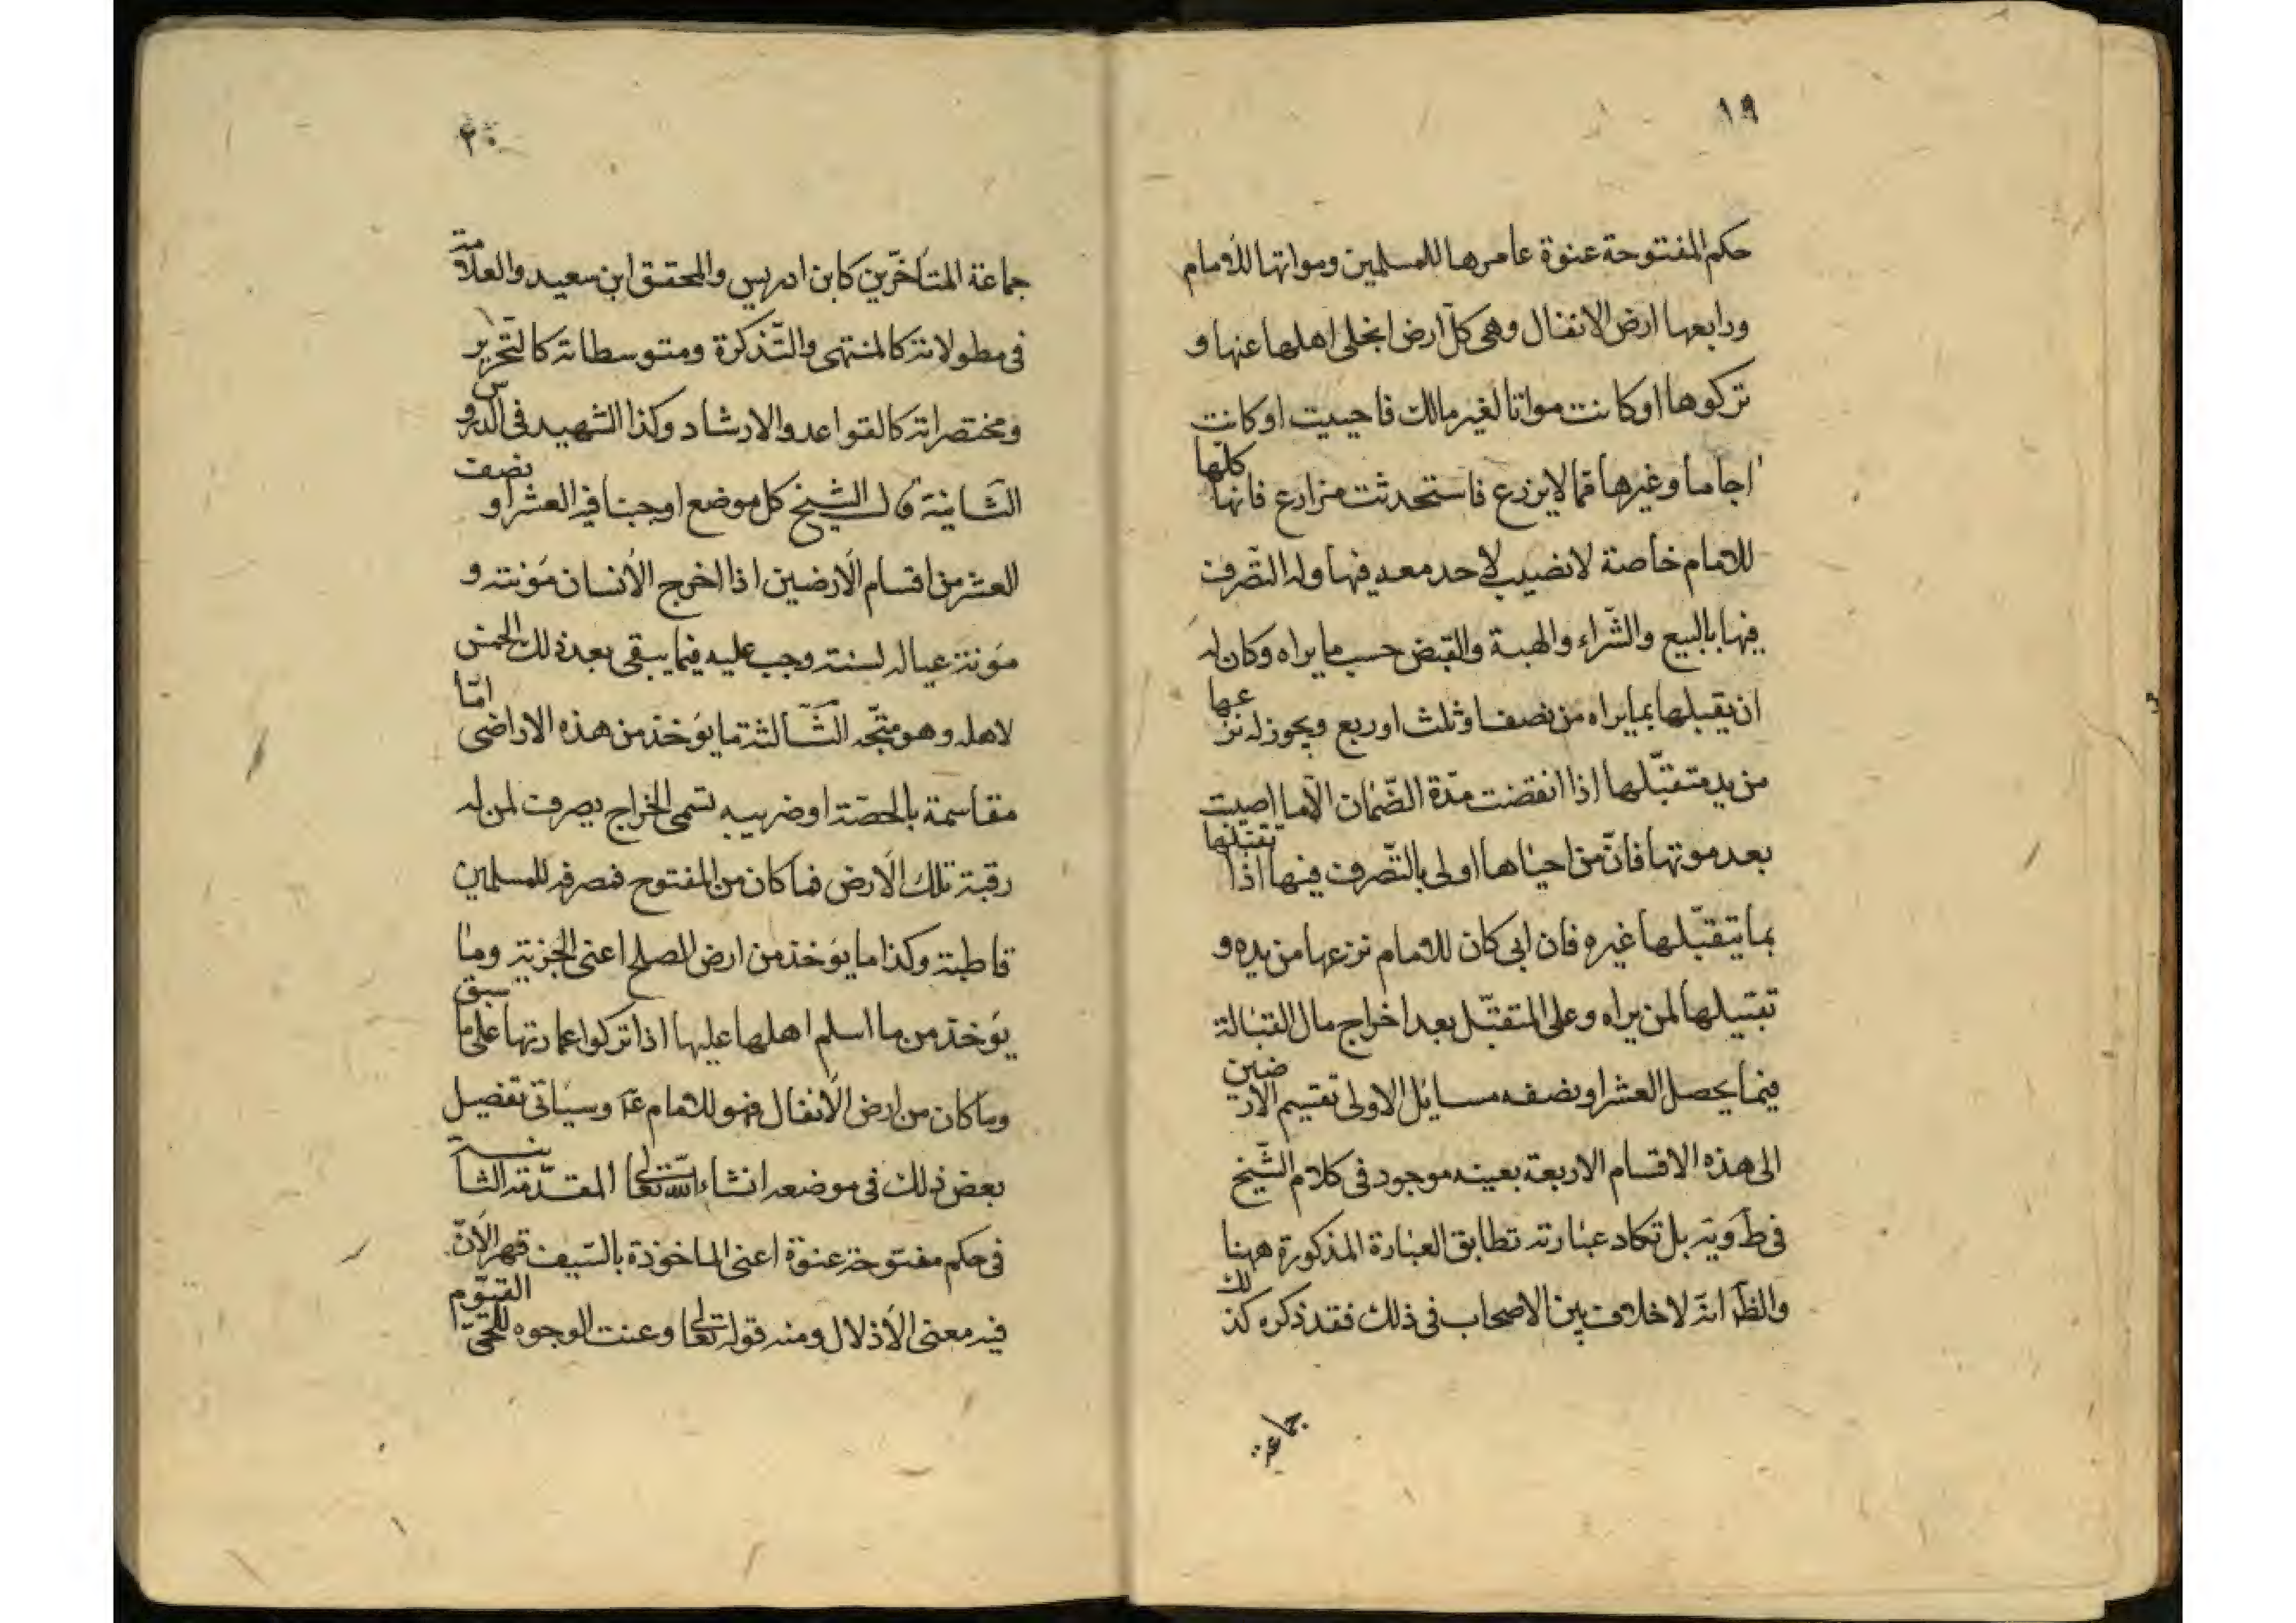 ١٩
حكم المفتوحة عنوة عامرها للمسلمين ومواتها للامام
ورابعها ارض الانفال وهى كلّ ارض انجلى اهلها عنها و
تركوها او كانت مواتا لغير مالك فاحييت او كانت
اجاما وغيرها مما لا يزرع فاستحدثت مزارع فانها كلّها
للامام خاصة لا نصيب لاحد معه فيها وله التّصرف
فيها بالبيع والشّراء والهبة والقبض حسب ما يراه وكان له
ان يقبلها بما يراه من نصف او ثلث او ربع ويجوز له نزعها
من يد متقبّلها اذا انقضت مدّة الضّمان الّا ما احييت
بعد موتها فانّ من احياها اولى بالتّصرف فيها اذا تقبّلها
بما يتقبّلها غيره فان ابى كان للامام نزعها من يده و
تقبيلها لمن يراه وعلى المتقبّل بعد اخراج مال القبالة
فيما يحصل العشر او نصفه مسايل الاولى تقسيم الارضين
الى هذه الاقسام الاربعة بعينه موجود فى كلام الشّيخ
فى ط وية بل تكاد عبارته تطابق العبارة المذكورة ههنا
والظّ انّه لا خلاف بين الاصحاب فى ذلك فقد ذكره كذلك
جماعة
٢٠
جماعة المتأخّرين كابن ادريس والمحقق ابن سعيد والعلّامة
فى مطولاته كالمنتهى والتّذكرة ومتوسطاته كالتّحرير
ومختصراته كالقواعد والارشاد وكذا الشهيد فى الدروس
الثانية قال الشيخ كل موضع اوجبنا فيه العشر او نصف
العشر من اقسام الارضين اذا اخرج الانسان مؤنته و
مؤنة عياله لسنته وجب عليه فيما يبقى بعد ذلك الخمس
لاهله وهو متّجه الثّالثة ما يؤخذ من هذه الاراضى امّا
مقاسمة بالحصّة او ضريبه تسمى الخراج يصرف لمن له
رقبة تلك الارض فما كان من المفتوح فمصرفه للمسلمين
قاطبة وكذا ما يؤخذ من ارض الصلح اعنى الجزية وما
يؤخذ من ما اسلم اهلها عليها اذا تركوا عمارتها على ما سبق
وما كان من ارض الانفال فهو للامام عۤ وسياتى تفصيل
بعض ذلك فى موضعه انشاء اللّه تعالى المقدّمة الثانية
فى حكم مفتوحة عنوة اعنى الماخوذة بالسّيف قهرا لانّ
فيه معنى الاذلال ومنه قوله تعالى وعنت الوجوه للحىّ القيّوم